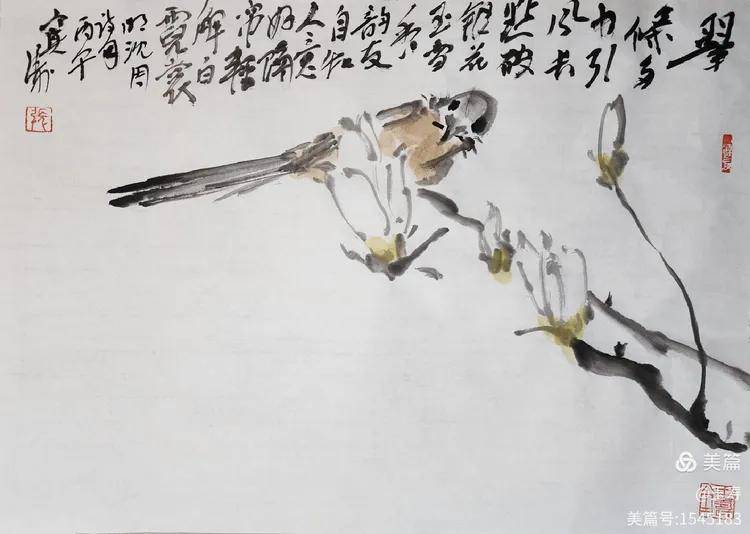 翠
條多
力引
風长
點破
銀花
玉雪
香
韵友
自知
人意
好隔
帘輕
解白
霓裳
明沈周
诗句
丙午
美篇
美篇号:1545183